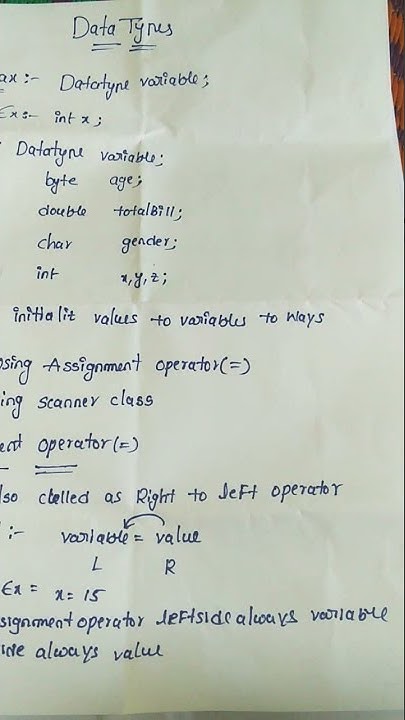 Data Types
ax :- Datatype variable;
Ex:- int x;
Datatype variable;
byte age;
double totalBill;
char gender;
int x,y,z;
initialit values to variables to ways
sing Assignment operator(=)
ing scanner class
ent operator(=)
lso called as Right to left operator
:- variable = value
L R
Ex = x = 15
signment operator leftside always variable
ide always value